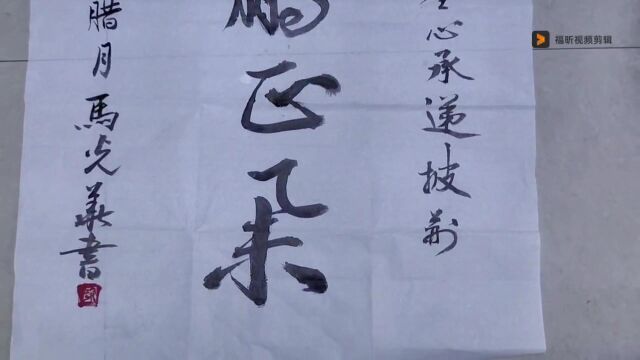 福昕视频剪辑
心承递披荆
正朵
腊月馬光義書